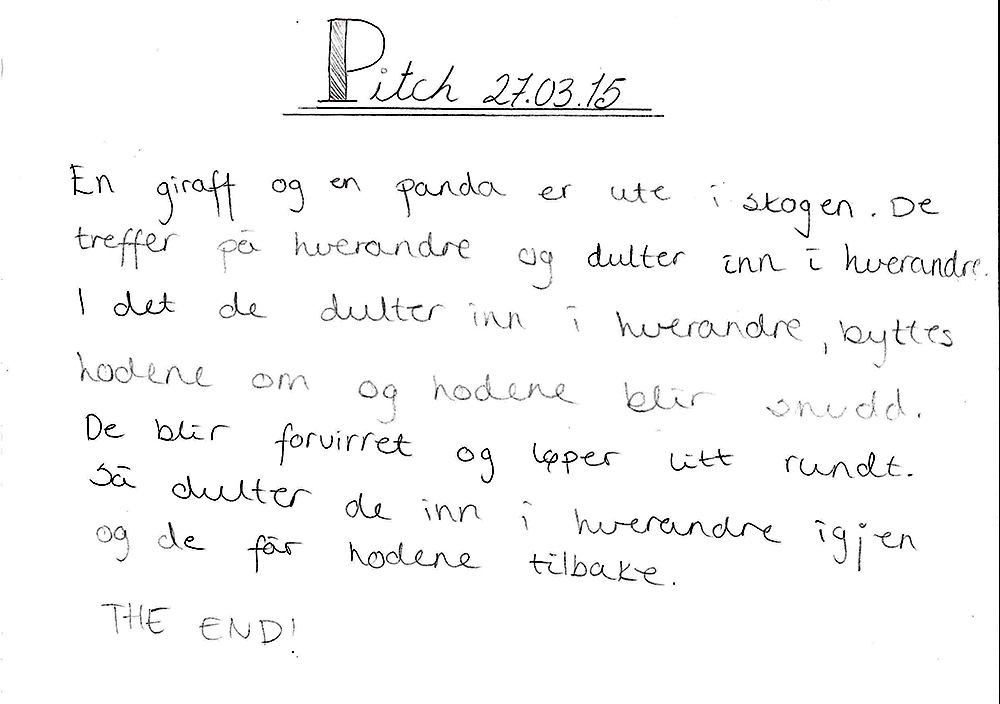 Pitch 27.03.15
En giraff og en panda er ute i skogen. De
treffer på hverandre og dulter inn i hverandre.
I det de dulter inn i hverandre, byttes
hodene om og hodene blir snudd.
De blir forvirret og løper litt rundt.
Så dulter de inn i hverandre igjen
og de får hodene tilbake.
THE END!